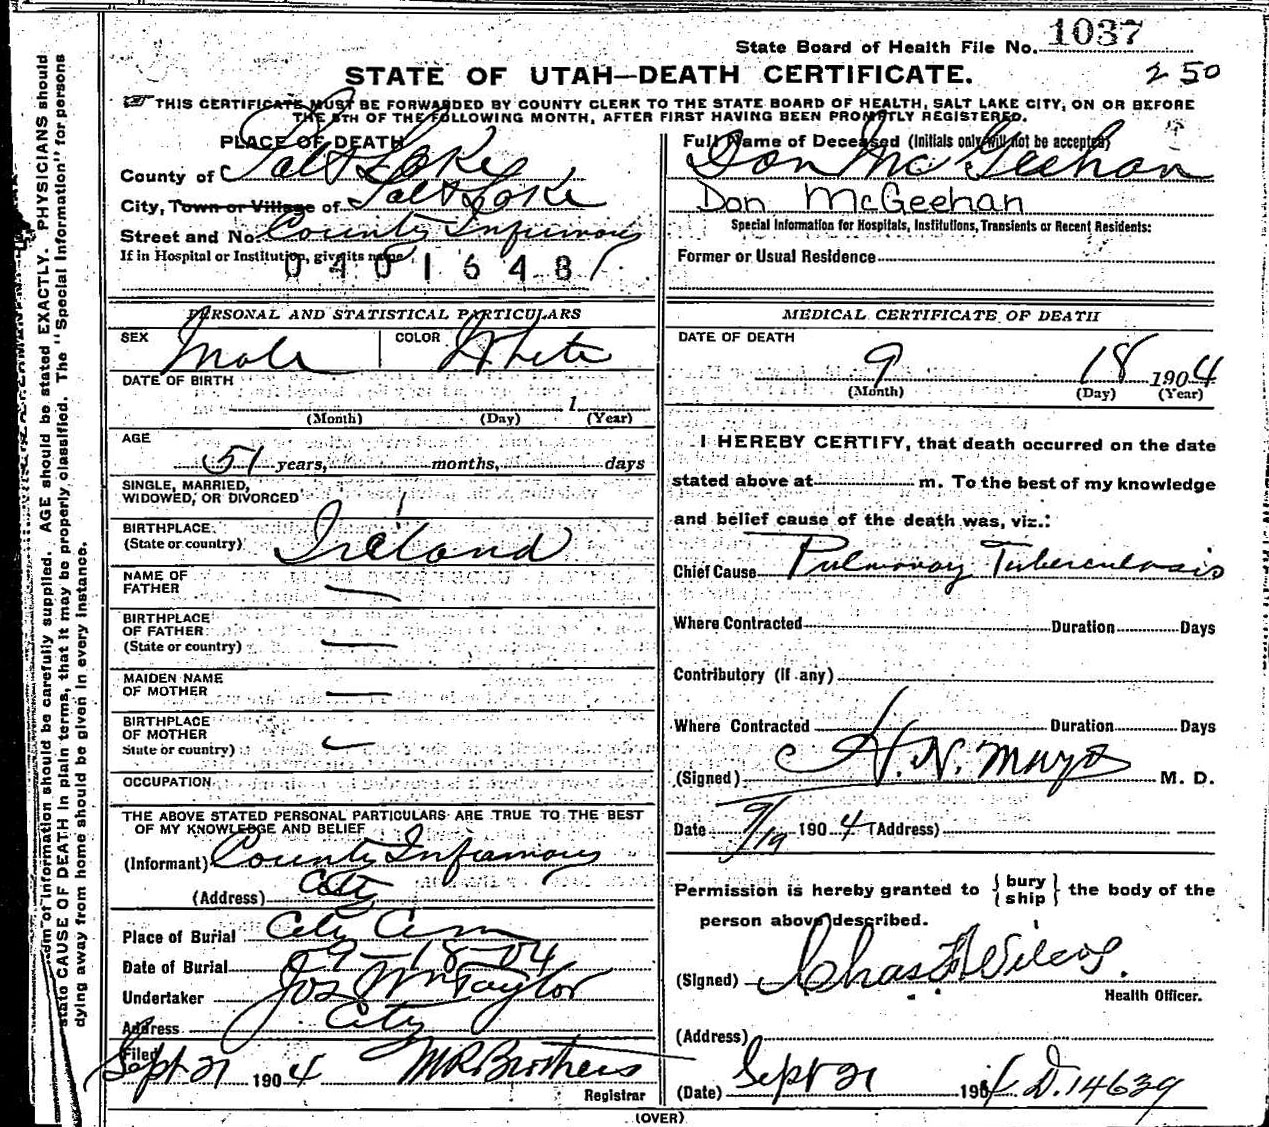 1037
State Board of Health File No.
2 50
STATE OF UTAH—DEATH CERTIFICATE.
THIS CERTIFICATE MUST BE FORWARDED BY COUNTY CLERK TO THE STATE BOARD OF HEALTH, SALT LAKE CITY, ON OR BEFORE
THE 5TH OF THE FOLLOWING MONTH, AFTER FIRST HAVING BEEN PROMPTLY REGISTERED.
PLACE OF DEATH
County of Salt Lake
City, Town or Village of Salt Lake
Street and No. County Infirmary
If in Hospital or Institution, give its name
0401648
Full Name of Deceased (Initials only will not be accepted)
Don McGeehan
Don McGeehan
Special Information for Hospitals, Institutions, Transients or Recent Residents:
Former or Usual Residence
PERSONAL AND STATISTICAL PARTICULARS
SEX Male COLOR White
DATE OF BIRTH
1
(Month) (Day) (Year)
AGE
51 years, months, days
SINGLE, MARRIED,
WIDOWED, OR DIVORCED
BIRTHPLACE
(State or country) Ireland
NAME OF
FATHER —
BIRTHPLACE
OF FATHER
(State or country) —
MAIDEN NAME
OF MOTHER —
BIRTHPLACE
OF MOTHER
State or country) —
OCCUPATION
THE ABOVE STATED PERSONAL PARTICULARS ARE TRUE TO THE BEST
OF MY KNOWLEDGE AND BELIEF
(Informant) County Infirmary
(Address) City
Place of Burial City Cem
Date of Burial 09-18-04
Undertaker Jos Wm Taylor
Address City
Filed Sept 21 1904 M R Brothers
Registrar
MEDICAL CERTIFICATE OF DEATH
DATE OF DEATH
9 18 1904
(Month) (Day) (Year)
I HEREBY CERTIFY, that death occurred on the date
stated above at m. To the best of my knowledge
and belief cause of the death was, viz.:
Chief Cause Pulmonary Tuberculosis
Where Contracted Duration Days
Contributory (If any)
Where Contracted Duration Days
(Signed) H. N. Mayo M. D.
Date 9/19 1904 (Address)
Permission is hereby granted to {bury ship} the body of the
person above described.
(Signed) Chas F Wilcox.
Health Officer.
(Address)
(Date) Sept 21 1904 D. 14639
(OVER)
dm of information should be carefully supplied. AGE should be stated EXACTLY. PHYSICIANS should
state CAUSE OF DEATH in plain terms, that it may be properly classified. The "Special Information" for persons
dying away from home should be given in every instance.